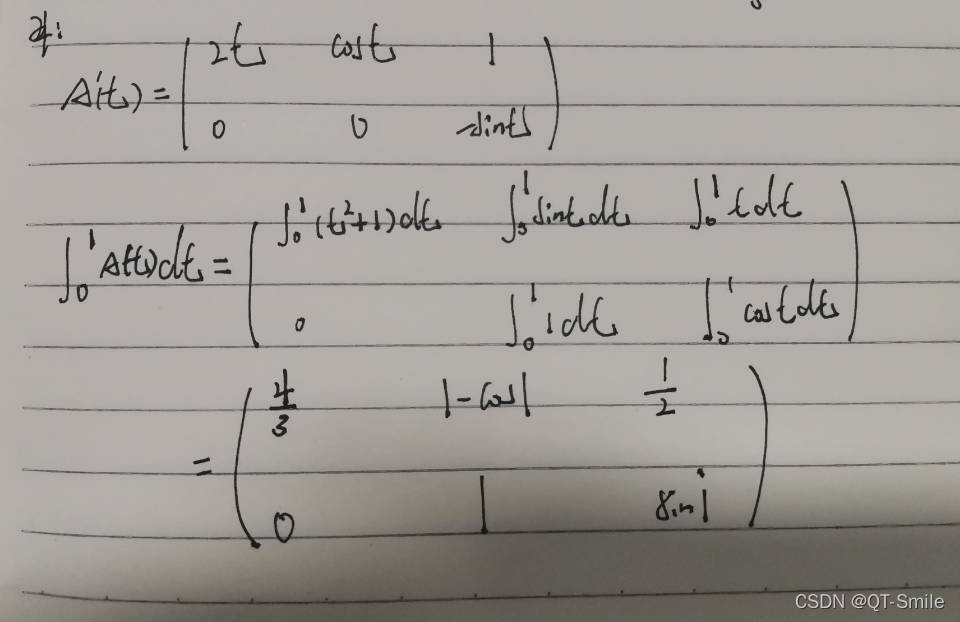 解:
A'(t) = ( 2t cost 1
0 0 -sint )
∫₀¹ A(t)dt = ( ∫₀¹(t²+1)dt ∫₀¹sint dt ∫₀¹t dt
0 ∫₀¹1dt ∫₀¹cost dt )
= ( 4/3 1-cos1 1/2
0 1 sin1 )
CSDN @QT-Smile